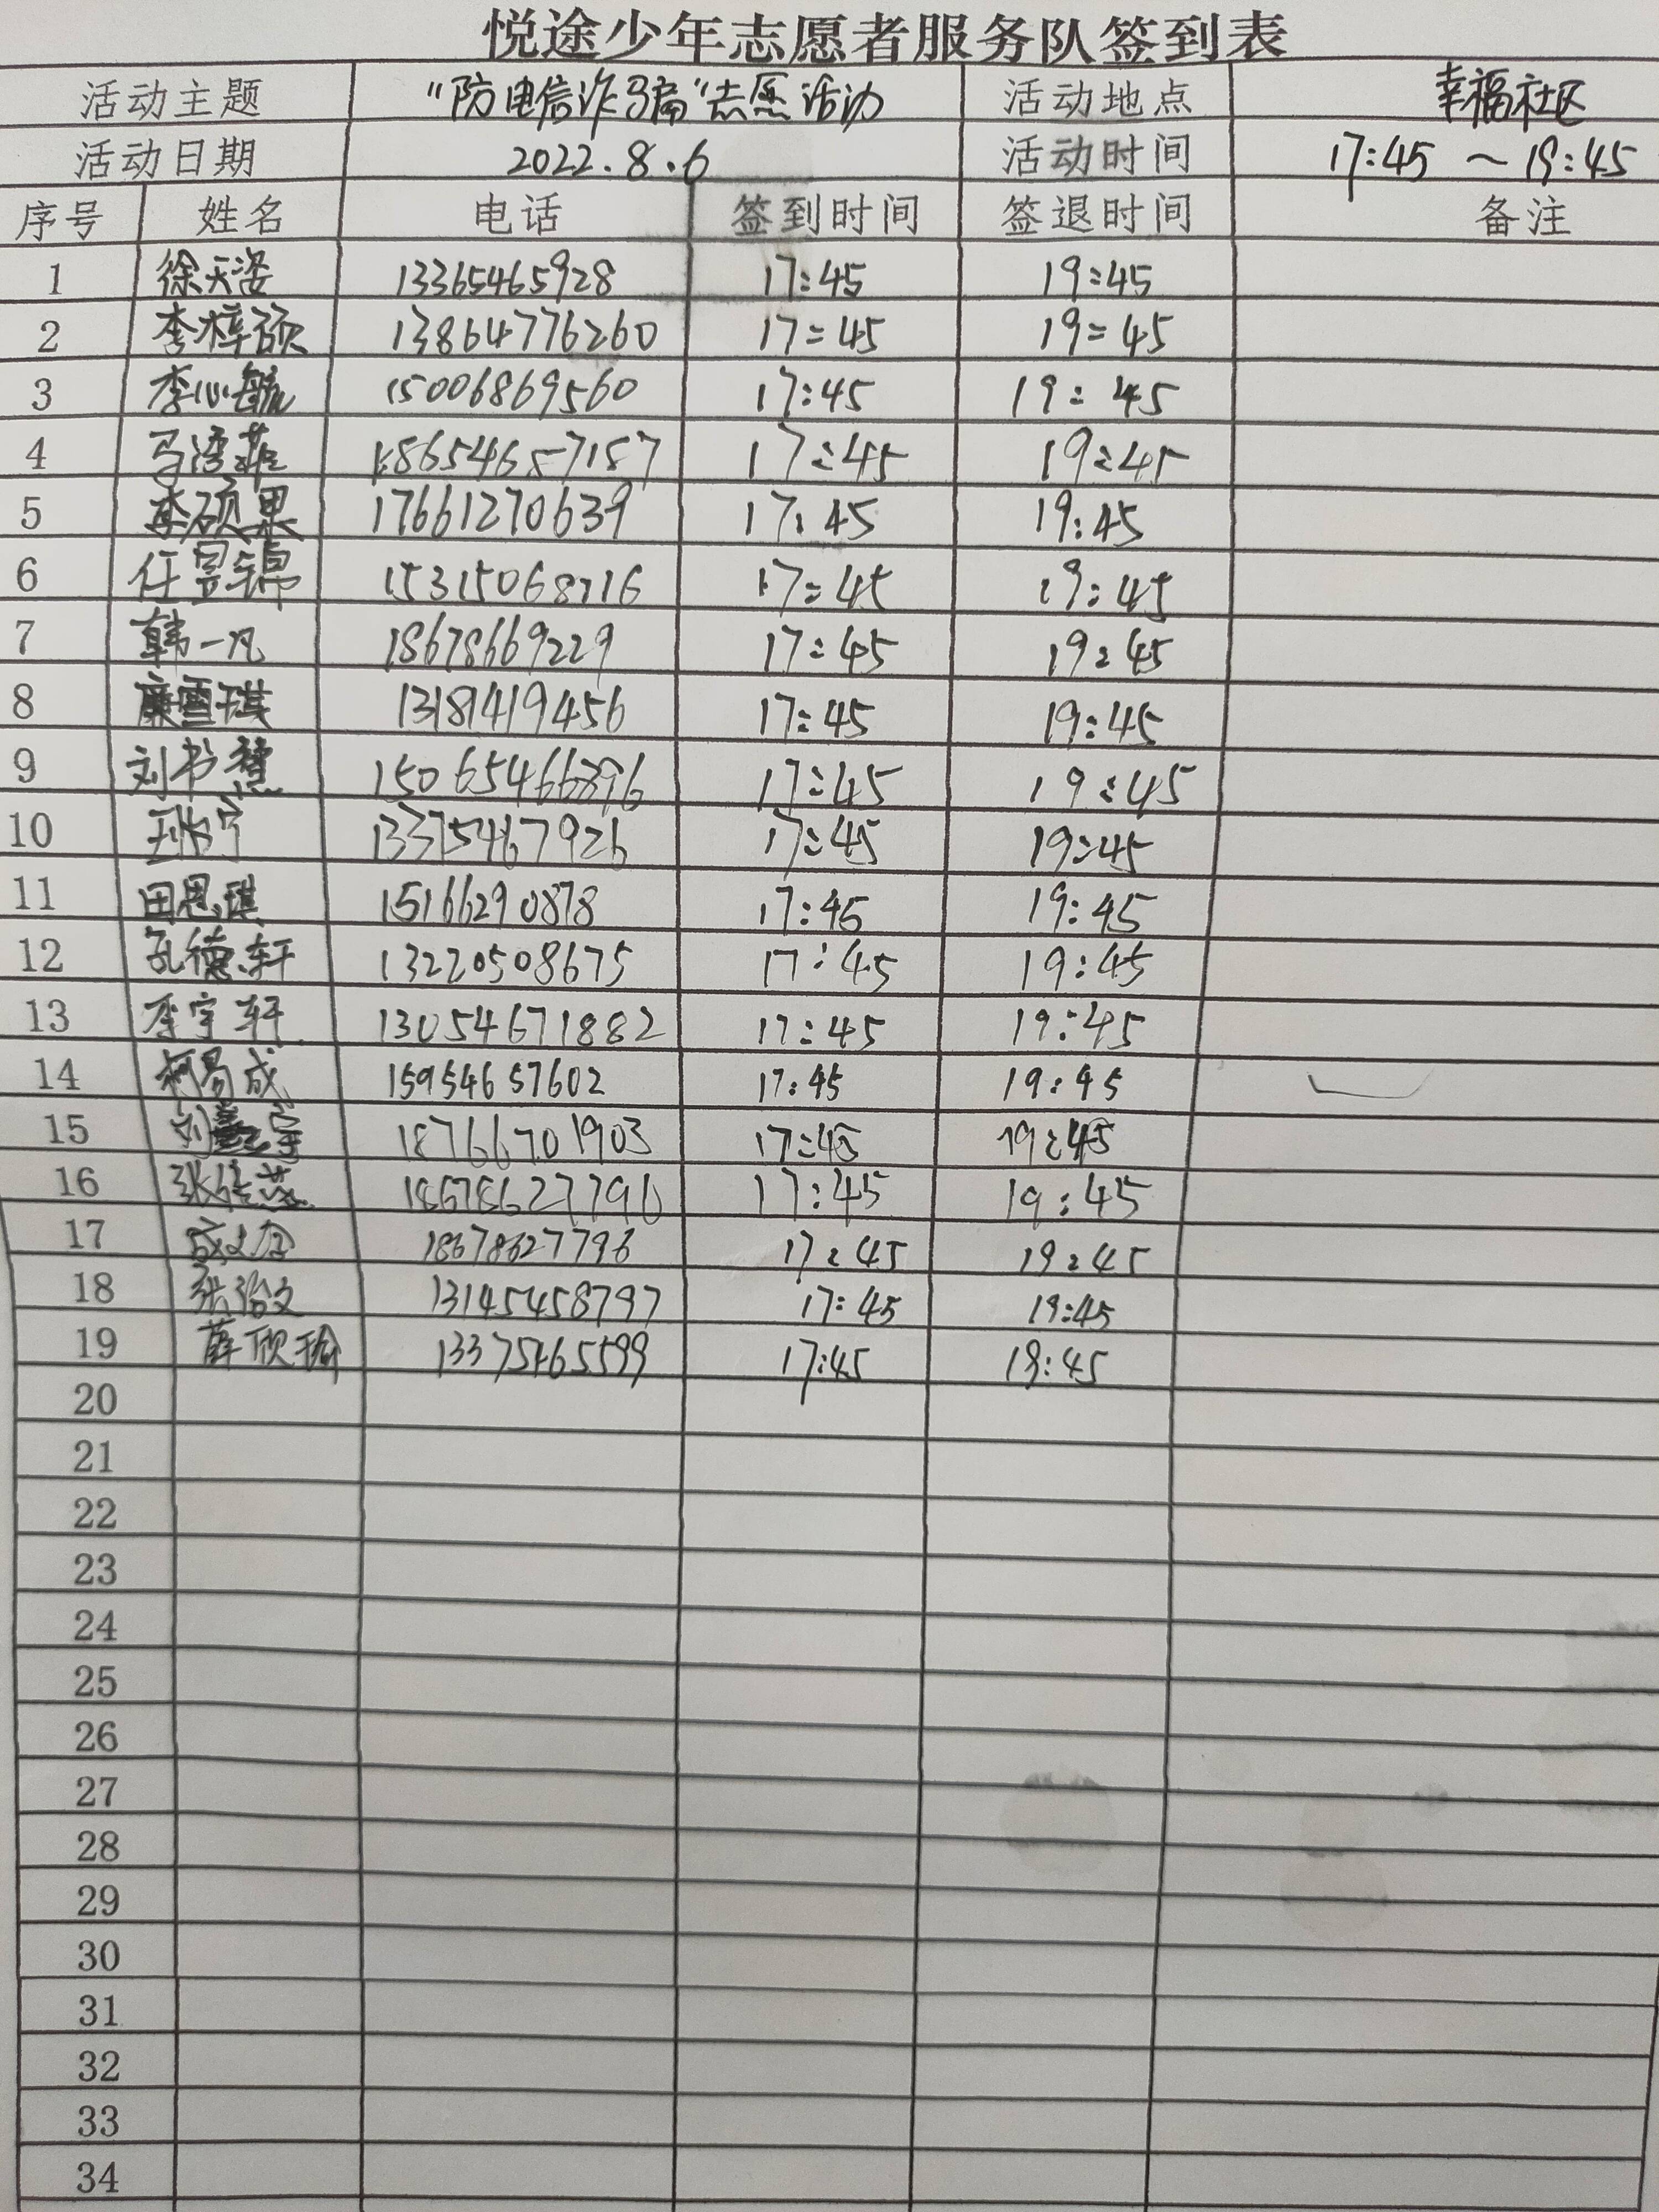 悦途少年志愿者服务队签到表
活动主题 "防电信诈骗"志愿活动 活动地点 幸福社区
活动日期 2022.8.6 活动时间 17:45 ~ 19:45
序号 姓名 电话 签到时间 签退时间 备注
1 徐天姿 13365465928 17:45 19:45
2 李梓硕 13864776260 17:45 19:45
3 李心毓 15006869560 17:45 19:45
4 马湾菲 18654687187 17:45 19:45
5 李硕果 17661270639 17:45 19:45
6 任昱锦 15315068716 17:45 19:45
7 韩一凡 18678669229 17:45 19:45
8 廉雪琪 13181419456 17:45 19:45
9 刘书慧 15065466896 17:45 19:45
10 13375467926 17:45 19:45
11 田恩琪 15166290878 17:45 19:45
12 孔德轩 13220508675 17:45 19:45
13 李宇轩 13054671882 17:45 19:45
14 柯易成 15954657602 17:45 19:45
15 刘 宇 18766701903 17:45 19:45
16 张 18678627796 17:45 19:45
17 18678627796 17:45 19:45
18 张 文 13145458797 17:45 19:45
19 薛欣瑜 13375465599 17:45 19:45
20
21
22
23
24
25
26
27
28
29
30
31
32
33
34